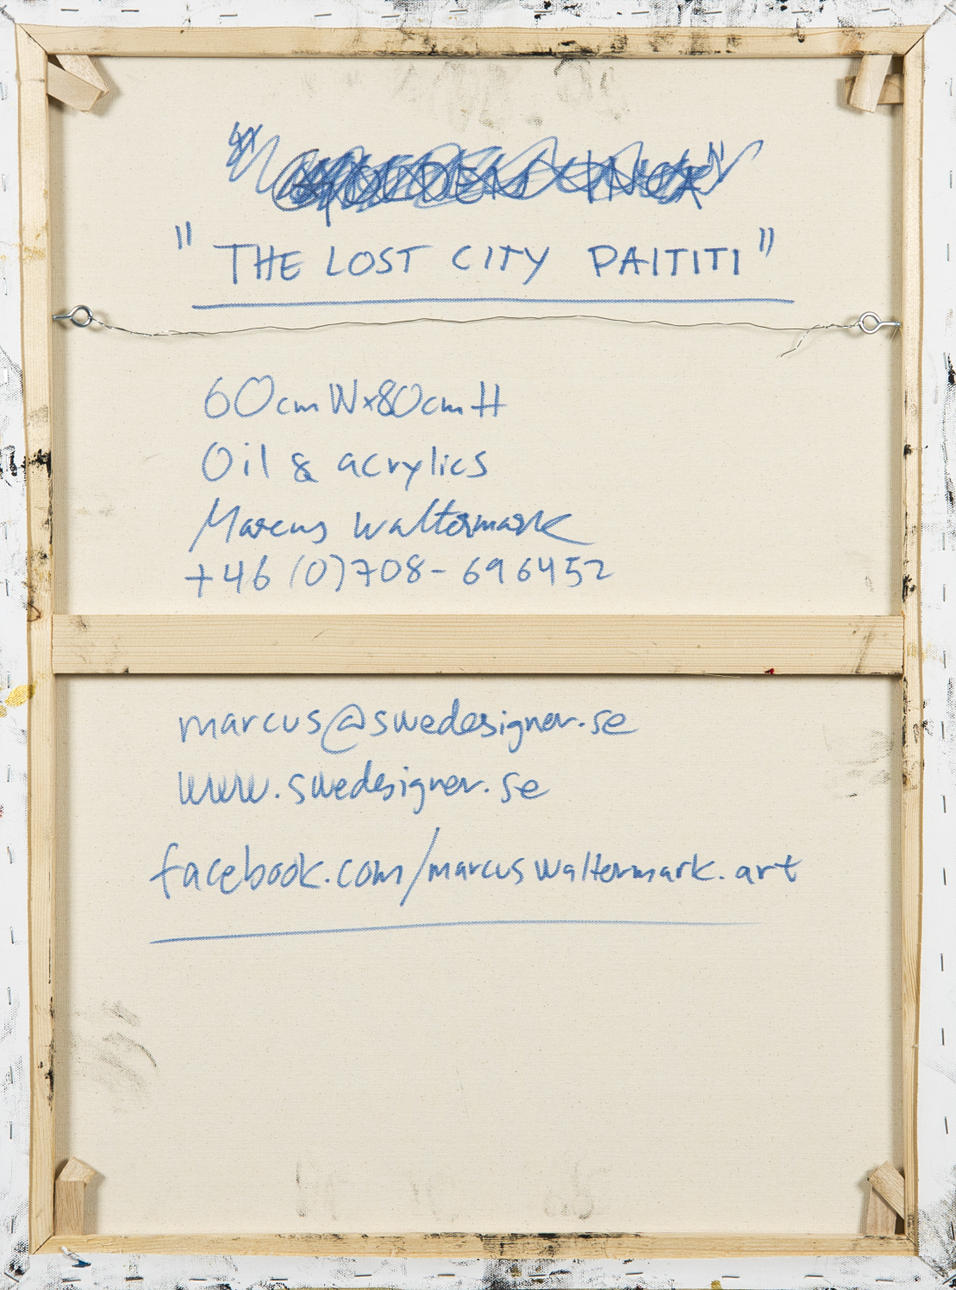 "GOLDEN INCA"
"THE LOST CITY PAITITI"
60cm W x 80cm H
Oil & acrylics
Marcus Waltermark
+46 (0)708-696452
marcus@swedesigner.se
www.swedesigner.se
facebook.com/marcuswaltermark.art